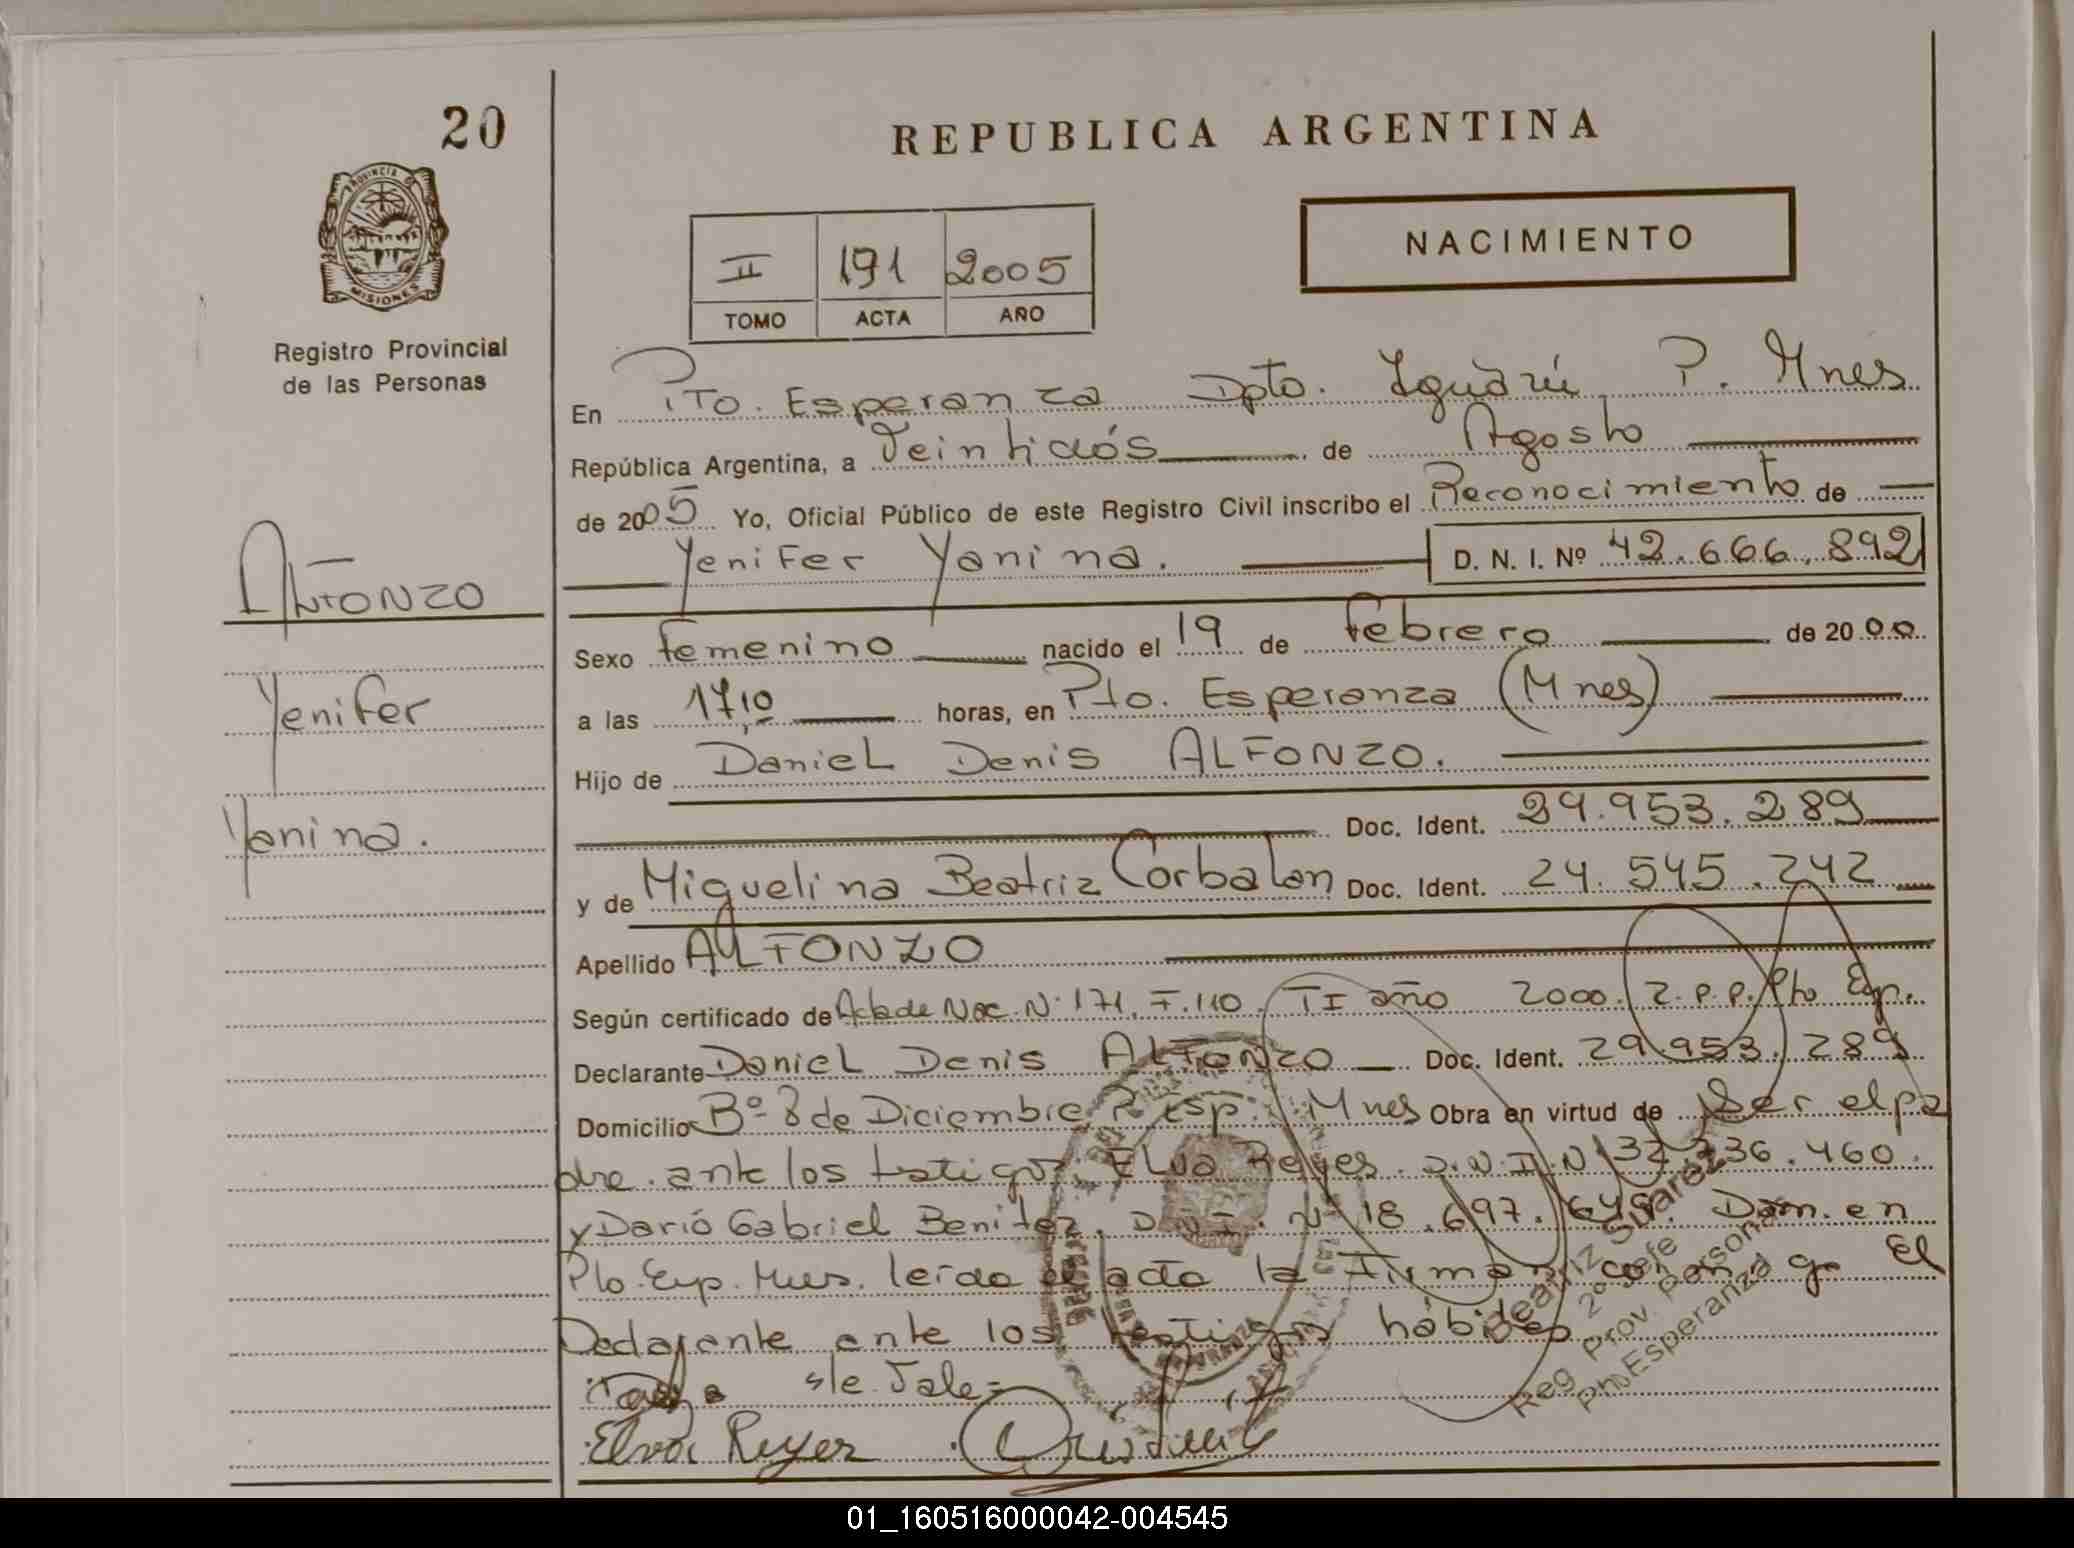 20
REPUBLICA ARGENTINA
PROVINCIA DE
MISIONES
Registro Provincial
de las Personas
NACIMIENTO
II 191 2005
TOMO ACTA AÑO
En Pto. Esperanza Dpto. Iguazú P. Mnes
República Argentina, a Veintidós de Agosto
de 2005 Yo, Oficial Público de este Registro Civil inscribo el Reconocimiento de
Yenifer Yanina. D. N. I. Nº 42.666.892
ALFONZO
Yenifer
Yanina.
Sexo femenino nacido el 19 de febrero de 2000
a las 17,10 horas, en Pto. Esperanza (Mnes)
Hijo de Daniel Denis ALFONZO.
Doc. Ident. 29.953.289
y de Miguelina Beatriz Corbalan Doc. Ident. 24.545.242
Apellido ALFONZO
Según certificado de Acta de Nac. N° 171. F. 110. TI año 2000. Z.P.P. Pto Esp.
Declarante Daniel Denis ALFONZO Doc. Ident. 29.953.289
Domicilio Bº 8 de Diciembre P. Esp. Mnes Obra en virtud de Ser el pa
dre. ante los testigos: Elva Reyes. D.N.I. N° 460.
y Darió Gabriel Benitez. D.N.I. N° 18.697. Dom. en
Pto. Esp. Mnes. leída el acta la Firman conmigo El
Declarante ante los testigos hábiles
s/e. Vale=
Elva Reyes
Beatriz Suarez
2º Jefe
Reg. Prov. Personas
Pto Esperanza
01_160516000042-004545